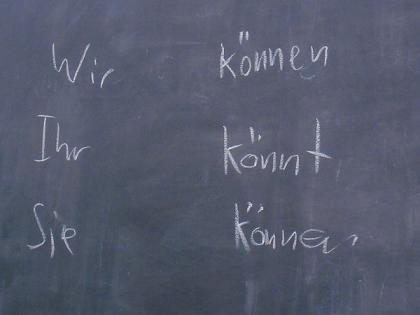 Wir können
Ihr könnt
Sie können